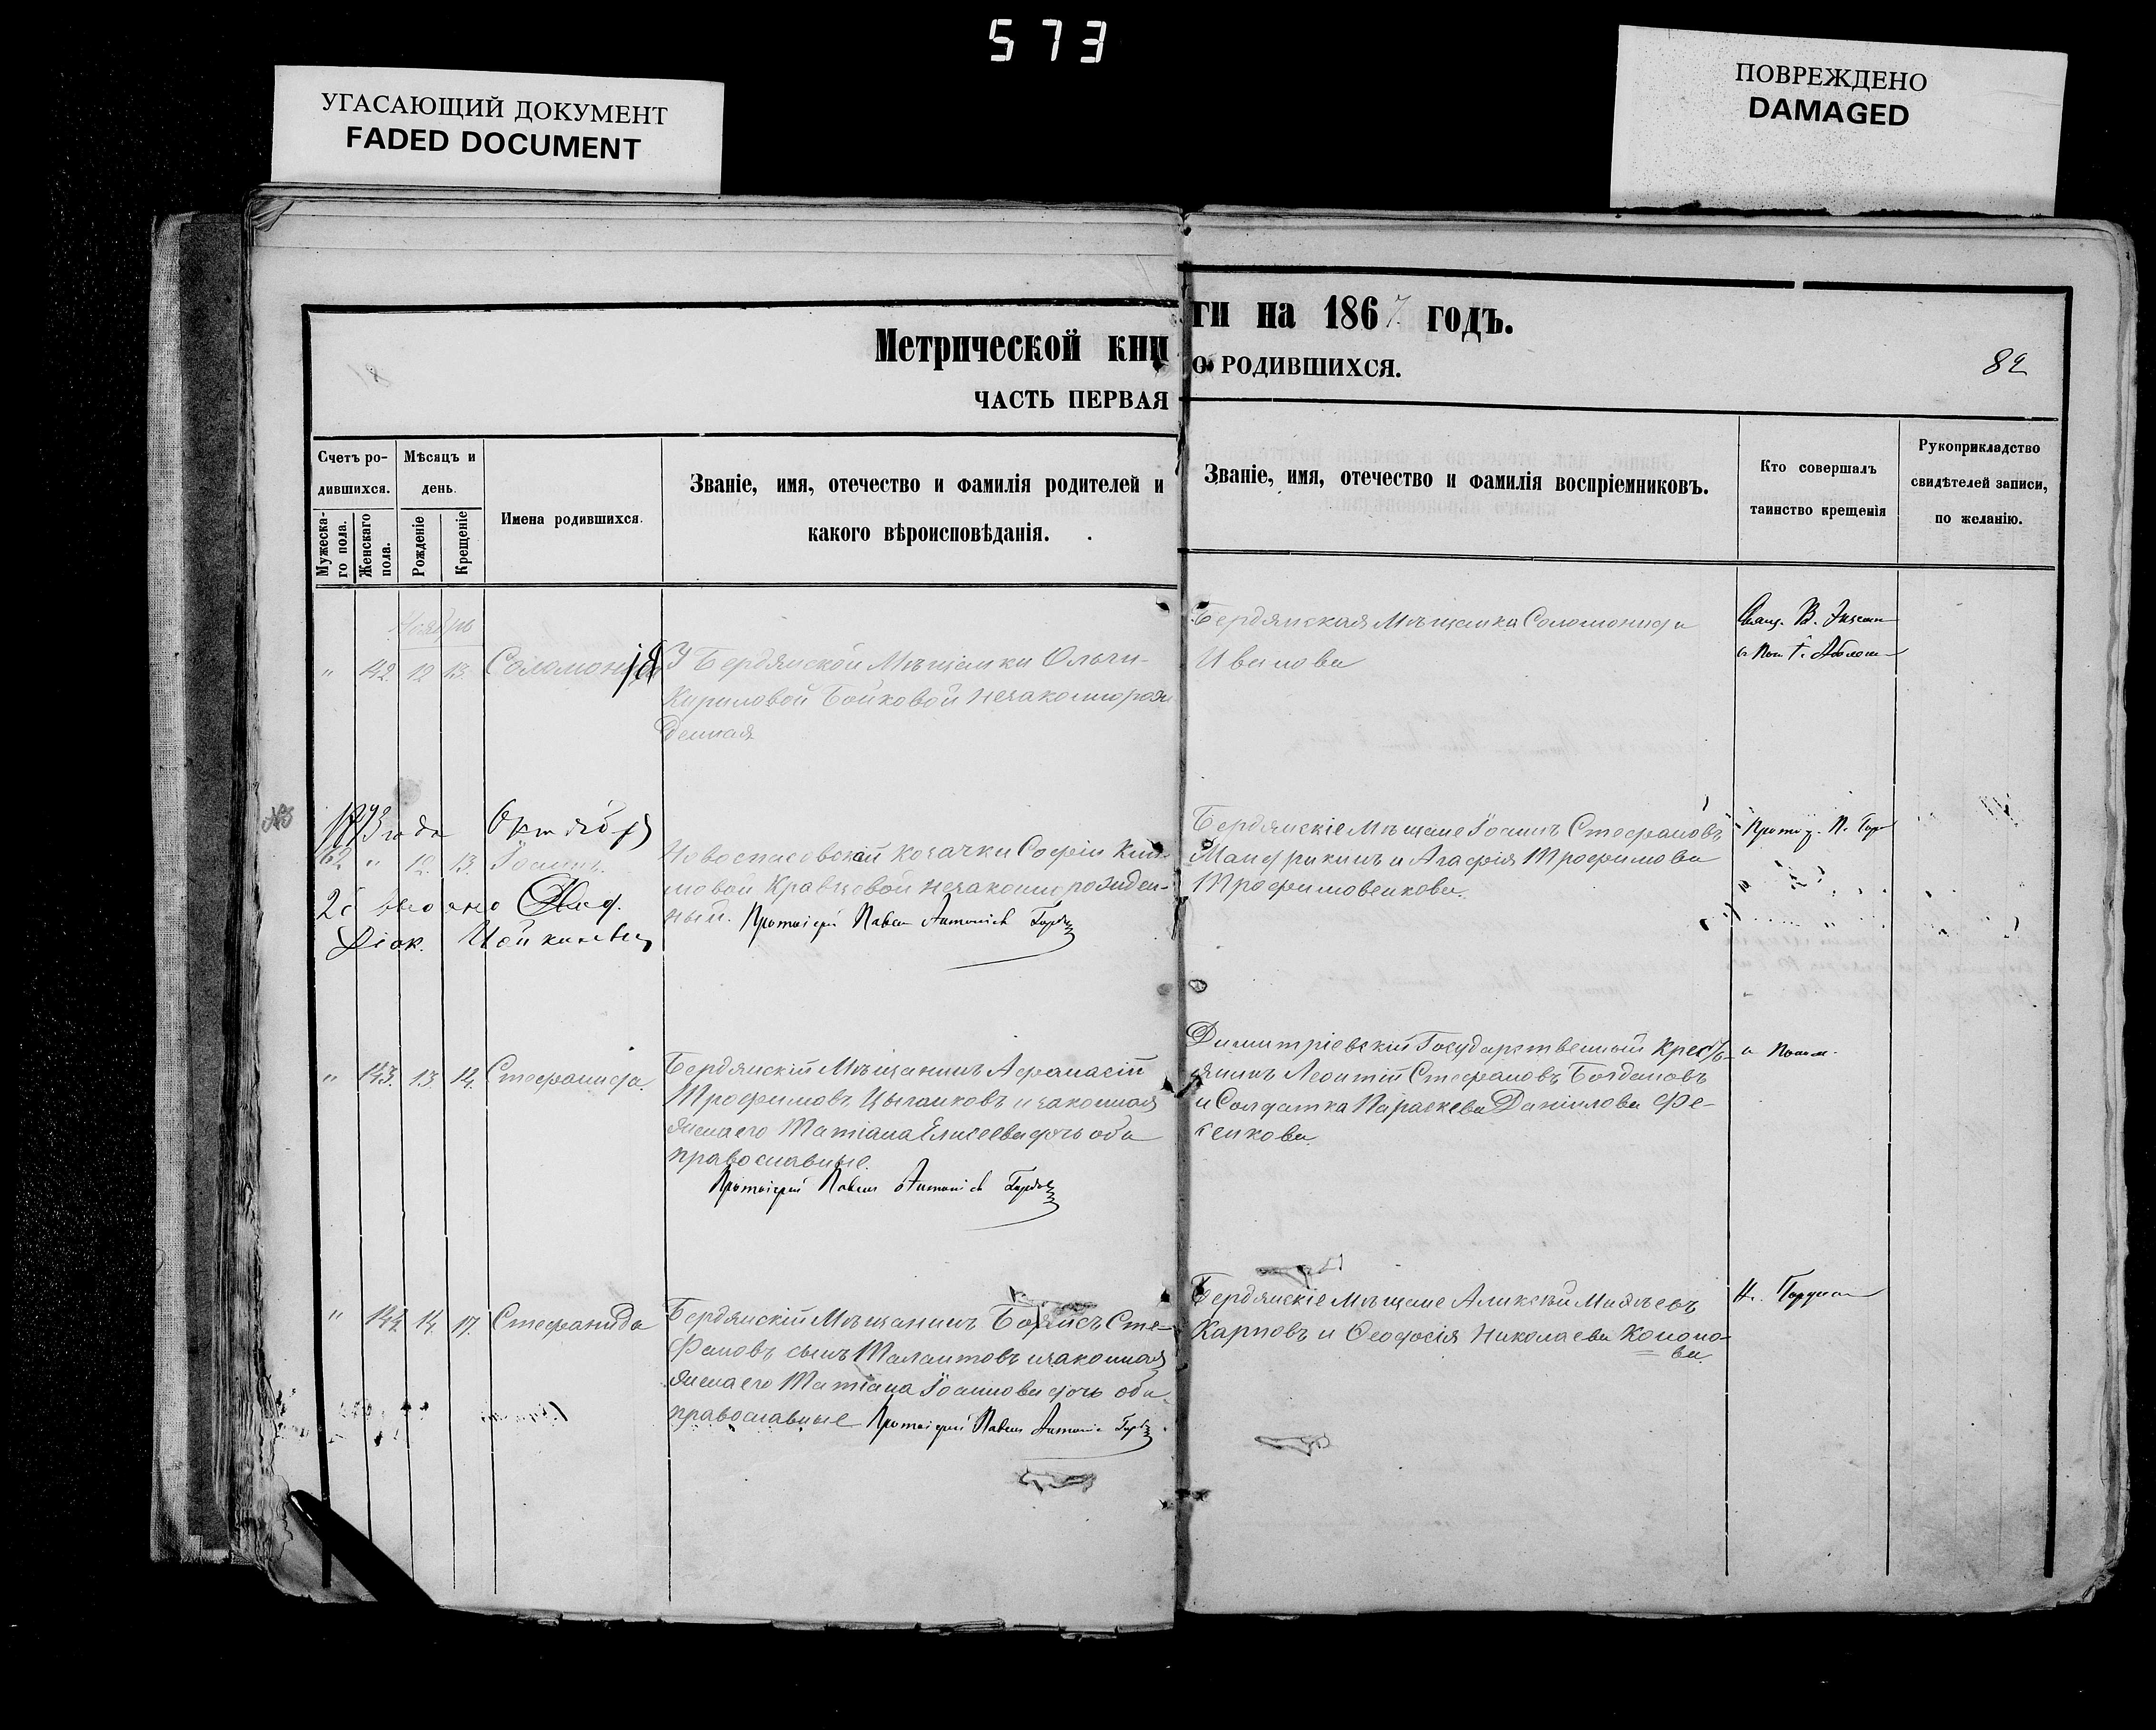 573
УГАСАЮЩИЙ ДОКУМЕНТ
FADED DOCUMENT
ПОВРЕЖДЕНО
DAMAGED
Метрической книги на 1867 годъ.
ЧАСТЬ ПЕРВАЯ О РОДИВШИХСЯ.
82
Счетъ родившихся.
Мужескаго пола.
Женскаго пола.
Мѣсяцъ и день.
Рожденіе
Крещеніе
Имена родившихся.
Званіе, имя, отечество и фамилія родителей и
какого вѣроисповѣданія.
Званіе, имя, отечество и фамилія воспріемниковъ.
Кто совершалъ
таинство крещенія
Рукоприкладство
свидѣтелей записи,
по желанію.
Ноябрь
" 142 12 13. Соломонія
У Бердянской Мѣщанки Ольги
Кириловой Бойковой незаконнорож
денная
Бердянская Мѣщанка Соломонида
Иванова
Свящ. В.
года Октября
" 12. 13. Іоаннъ.
Діак.
Новоспасовской козачки Софіи
мовой Кравцовой незаконнорожден-
ный. Протоіерей Павелъ
Бердянскіе Мѣщане Іоаннъ Стефановъ
Мандрыкинъ и Агафія Трофимова
Трофимовенкова.
Протоі. П.
" 143. 13. 14. Стефанида.
Бердянскій Мѣщанинъ Афанасій
Трофимовъ Цыганковъ и законная
жена его Татіана Елисеева дочь оба
православные.
Протоіерей Павелъ
Димитріевскій Государственный Кресть-
янинъ Леонтій Стефановъ Богдановъ
и Солдатка Параскева Даніилова Фе-
сенкова.
" 144. 14. 17. Стефанида
Бердянскій Мѣщанинъ Борисъ Сте-
фановъ сынъ Талантовъ и законная
жена его Татіана Іоаннова дочь оба
православные Протоіерей Павелъ
Бердянскіе Мѣщане Алексѣй
Карповъ и Феодосія Николаева Кононо-
ва.